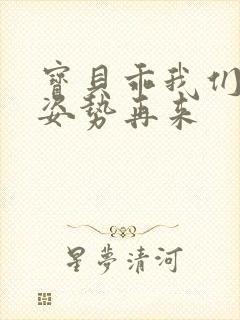 寶貝乖我们
姿勢再来
星夢清河